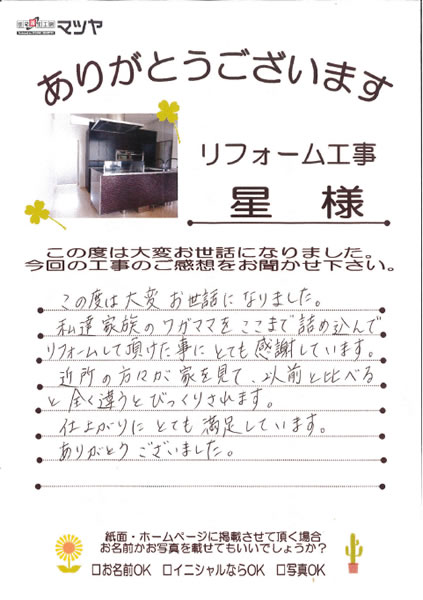 マツヤ
ありがとうございます
リフォーム工事
星 様
この度は大変お世話になりました。
今回の工事のご感想をお聞かせ下さい。
この度は大変 お世話に なりました。
私達 家族の ワガママを ここまで 詰め込んで
リフォームして 頂けた事に とても 感謝しています。
近所の 方々が 家を見て、以前と比べる
と 全く違うと びっくりされます。
仕上がりに とても 満足しています。
ありがとう ございました。
紙面・ホームページに掲載させて頂く場合
お名前かお写真を載せてもいいでしょうか?
□お名前OK □イニシャルならOK □写真OK